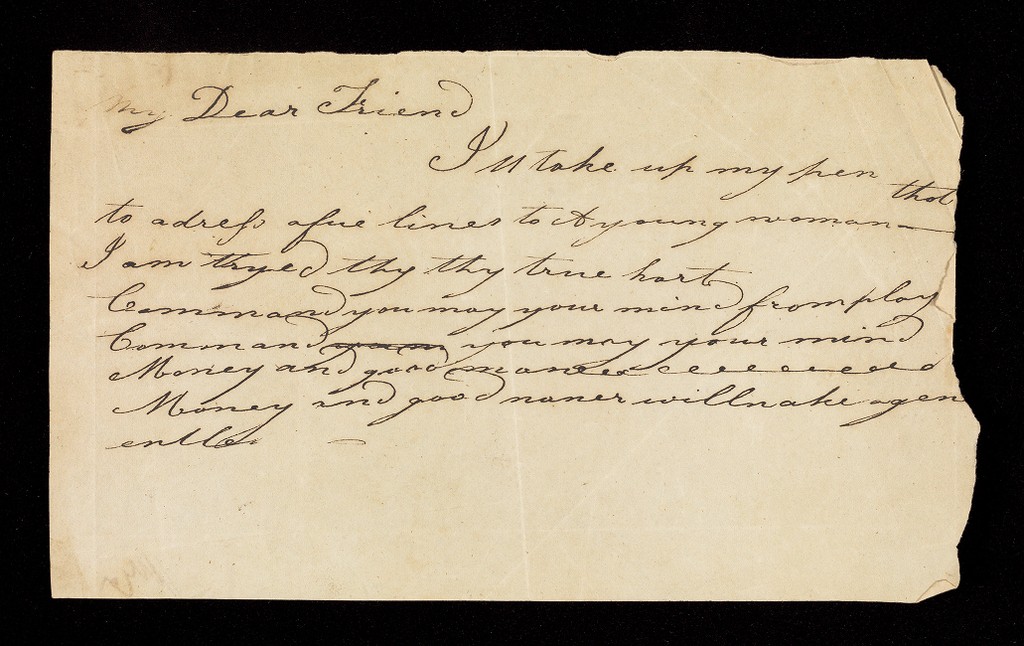 My Dear Friend
I'll take up my pen
to adress a fue lines to A young woman that
I am tryed thy thy true hart
Command you may your mind from play
Command you may your mind
Money and good maner eeeeeeeed
Money and good naner will nake a gen